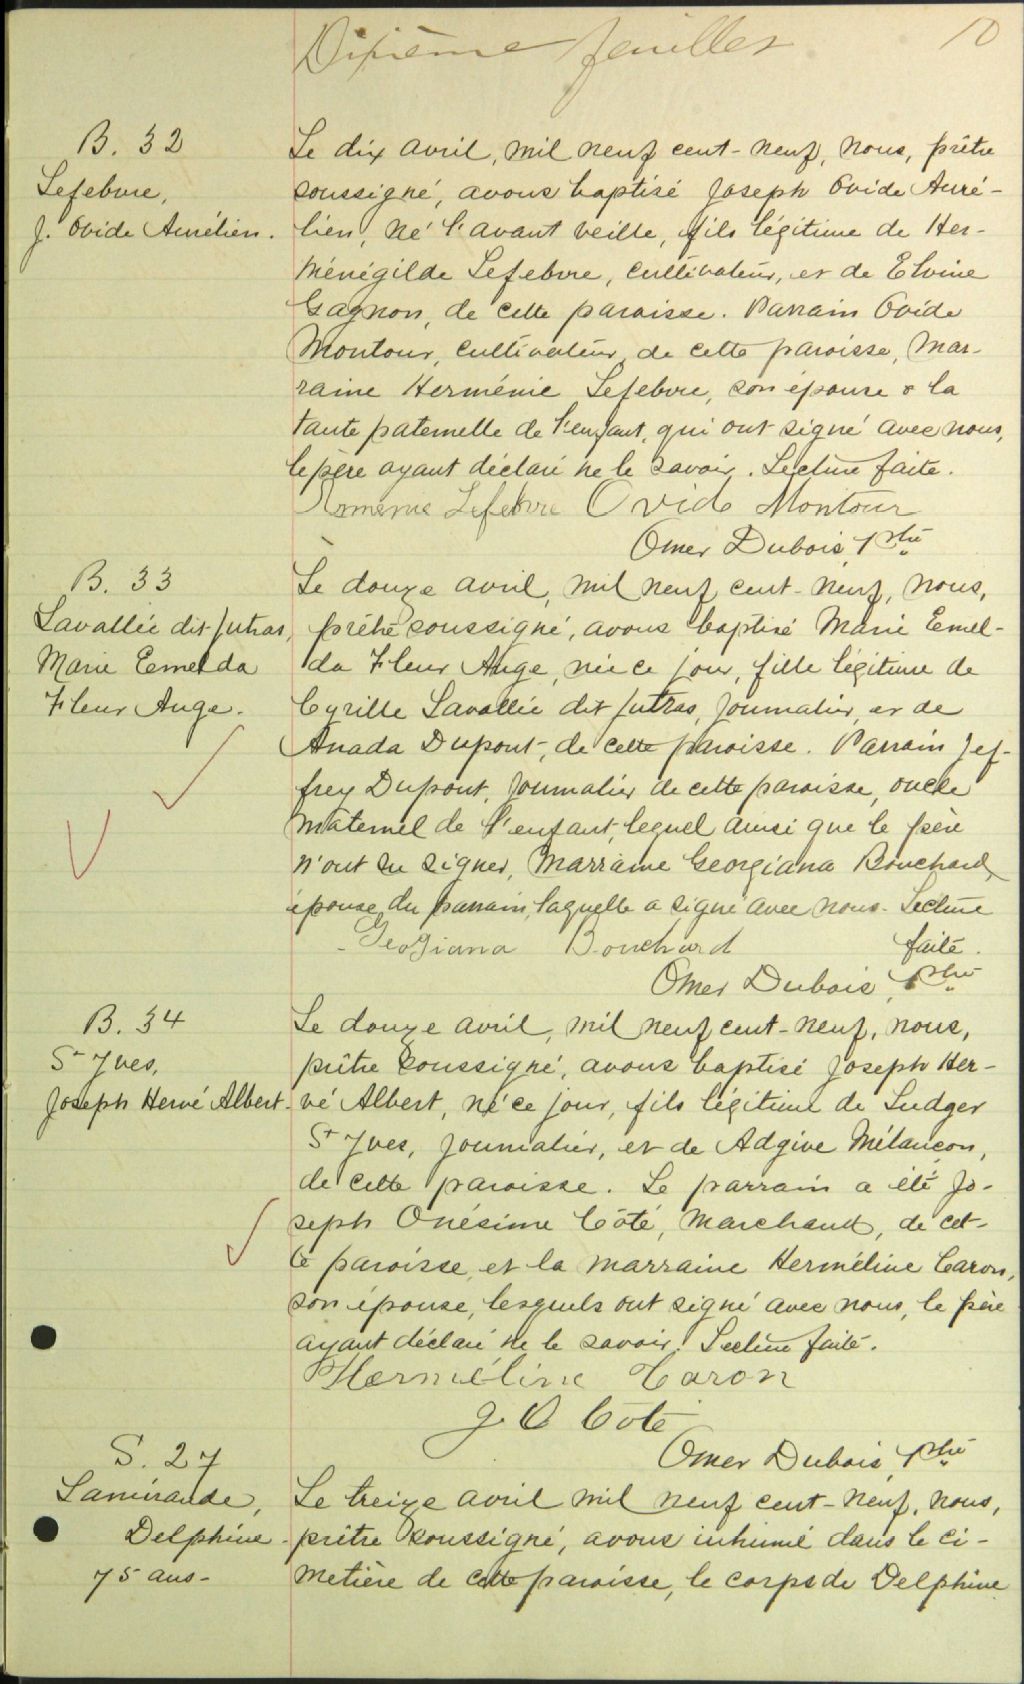 Dixième feuillet
10
B. 32
Lefebvre,
J. Ovide Aurélien.
Le dix avril, mil neuf cent-neuf, nous, prêtre
soussigné, avons baptisé Joseph Ovide Auré-
lien, né l'avant veille, fils légitime de Her-
ménégilde Lefebvre, cultivateur, et de Elvine
Gagnon, de cette paroisse. Parrain Ovide
Montour, cultivateur, de cette paroisse, mar-
raine Herménie Lefebvre, son épouse & la
tante paternelle de l'enfant, qui ont signé avec nous,
le père ayant déclaré ne le savoir. Lecture faite.
Armenie Lefebvre Ovide Montour
Omer Dubois, Ptre
B. 33
Lavallée dit Jutras,
Marie Esmelda
Fleur Ange.
Le douze avril, mil neuf cent-neuf, nous,
prêtre soussigné, avons baptisé Marie Esmel-
da Fleur Ange, née ce jour, fille légitime de
Cyrille Lavallée dit Jutras, journalier, et de
Anada Dupont, de cette paroisse. Parrain Jef-
frey Dupont, journalier de cette paroisse, oncle
maternel de l'enfant, lequel ainsi que le père
n'ont su signer, marraine Georgiana Bouchard,
épouse du parrain, laquelle a signé avec nous. Lecture
faite.
Geogiana Bouchard
Omer Dubois, Ptre
B. 34
St Yves,
Joseph Hervé Albert
Le douze avril, mil neuf cent-neuf, nous,
prêtre soussigné, avons baptisé Joseph Her-
vé Albert, né ce jour, fils légitime de Ludger
St Yves, journalier, et de Adgive Mélançon,
de cette paroisse. Le parrain a été Jo-
seph Onésime Côté, marchand, de cet-
te paroisse, et la marraine Herméline Caron,
son épouse, lesquels ont signé avec nous, le père
ayant déclaré ne le savoir. Lecture faite.
Herméline Caron
J. O Côté
Omer Dubois, Ptre
S. 27
Lamirande,
Delphine
75 ans-
Le treize avril mil neuf cent-neuf, nous,
prêtre soussigné, avons inhumé dans le ci-
metière de cette paroisse, le corps de Delphine